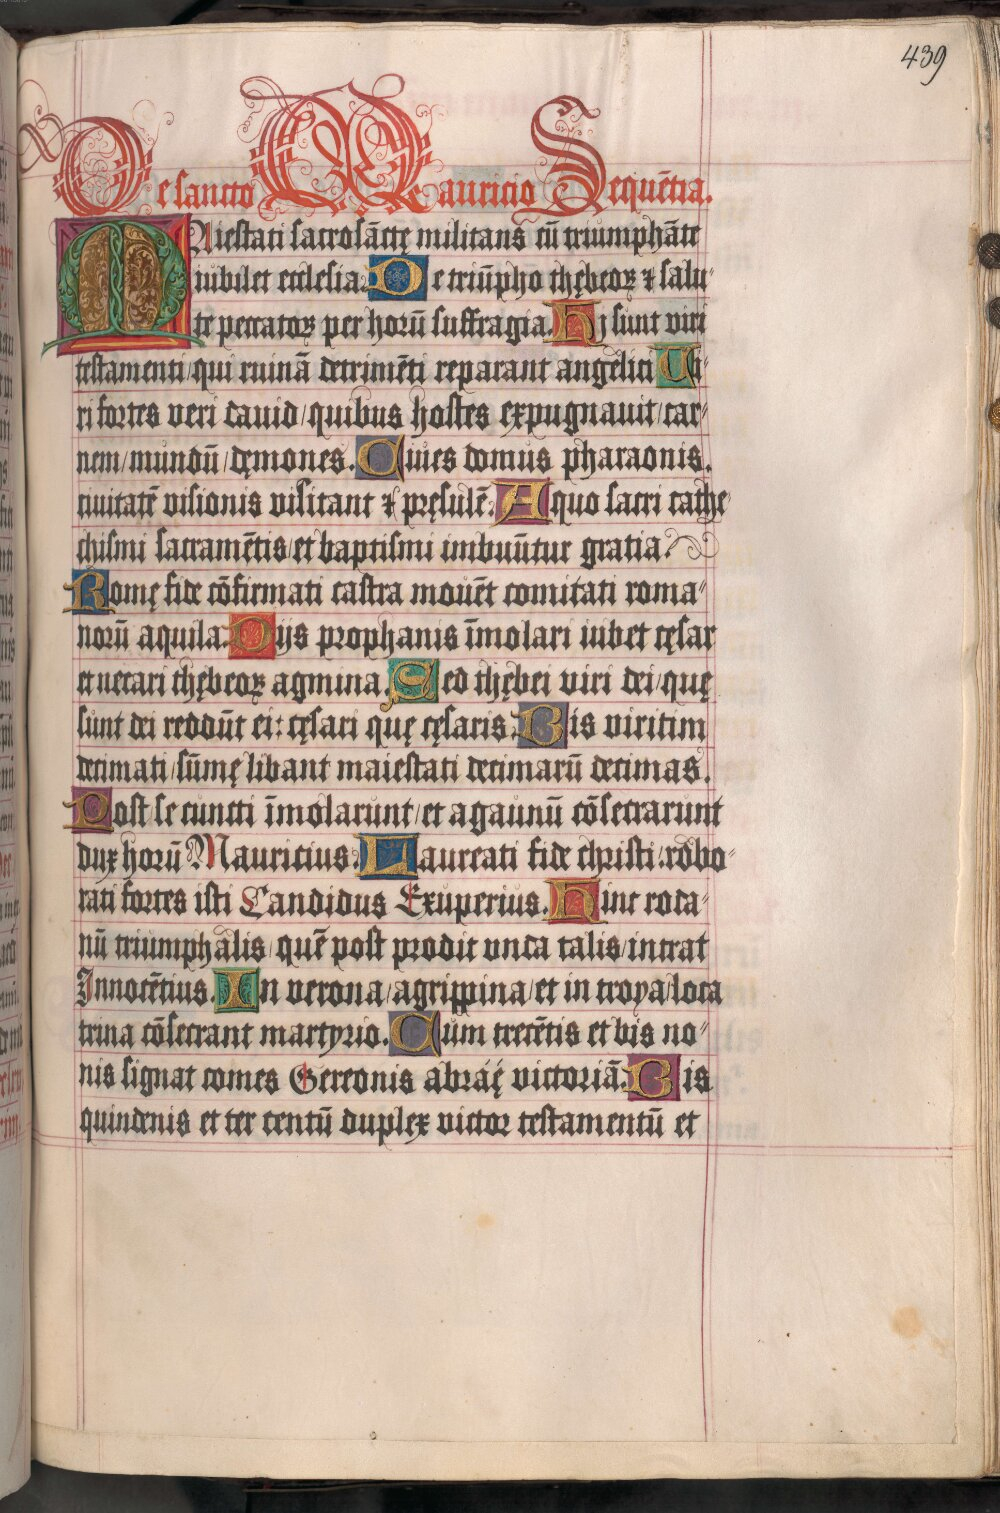 439
De sancto Mauricio Sequẽtia.
MAiestati sacrosãctę militans cũ triumphãte
iubilet ecclesia. De triũpho thębeoꝝ ⁊ salu-
te peccatoꝝ per horũ suffragia. Hij sunt viri
testamenti/qui ruinã detrimẽti reparant angelici Ui-
ri fortes veri dauid/quibus hostes expugnauit/car-
nem/mundũ/dęmones. Ciues domus pharaonis.
ciuitatẽ visionis visitant ⁊ pręsulẽ. A quo sacri cathe
chismi sacramẽtis/et baptismi imbuũtur gratia.
Romę fide cõfirmati castra mouẽt comitati roma-
norũ aquila. Dijs prophanis ĩmolari iubet cęsar
et necari thębeoꝝ agmina. Sed thębei viri dei/quę
sunt dei reddũt ei: cęsari quę cęsaris. Bis viritim
decimati/sũmę libant maiestati decimarũ decimas.
Post se cuncti ĩmolarunt/et agaunũ cõsecrarunt
dux horũ Mauricius. Laureati fide christi/robo-
rati fortes isti Candidus Exuperius. Hinc roda-
nũ triumphalis/quẽ post prodit vnda talis/intrat
Innocẽtius. In verona/agrippina/et in troya/loca
trina cõsecrant martyrio. Cum trecẽtis et bis no-
nis signat comes Gereonis abráę victoriã. Bis
quindenis et ter centũ duplex victor testamentũ et